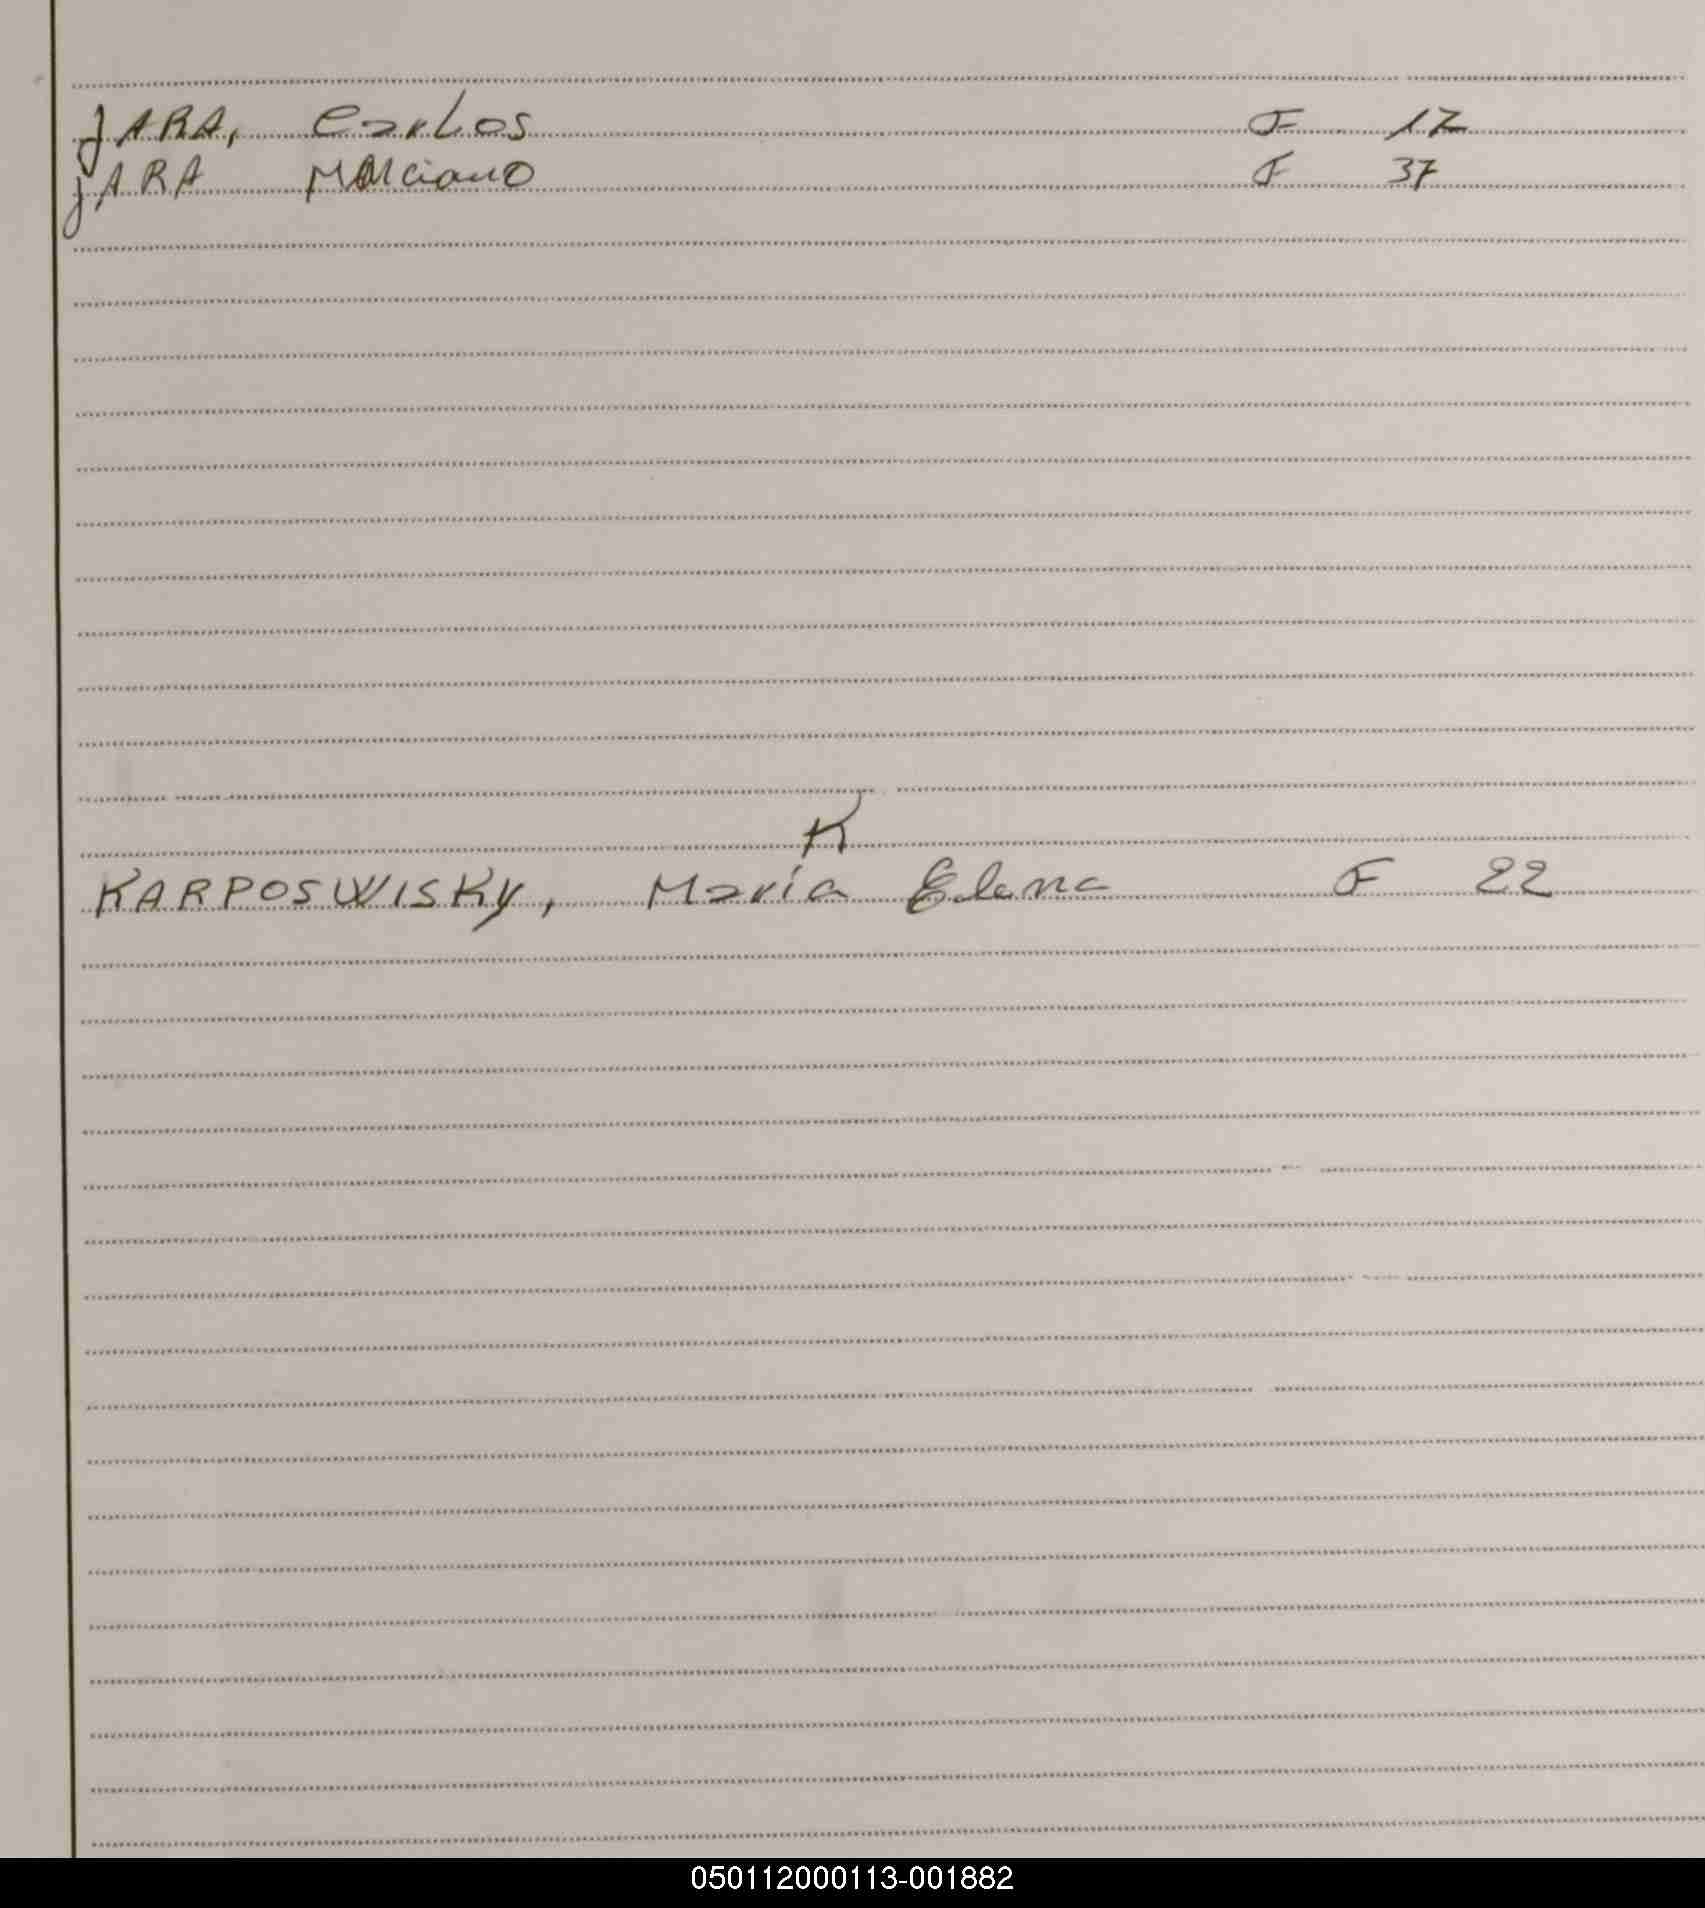 JARA, Carlos F 17
JARA Marciano F 37
K
KARPOSWISKY, María Elena F 22
050112000113-001882